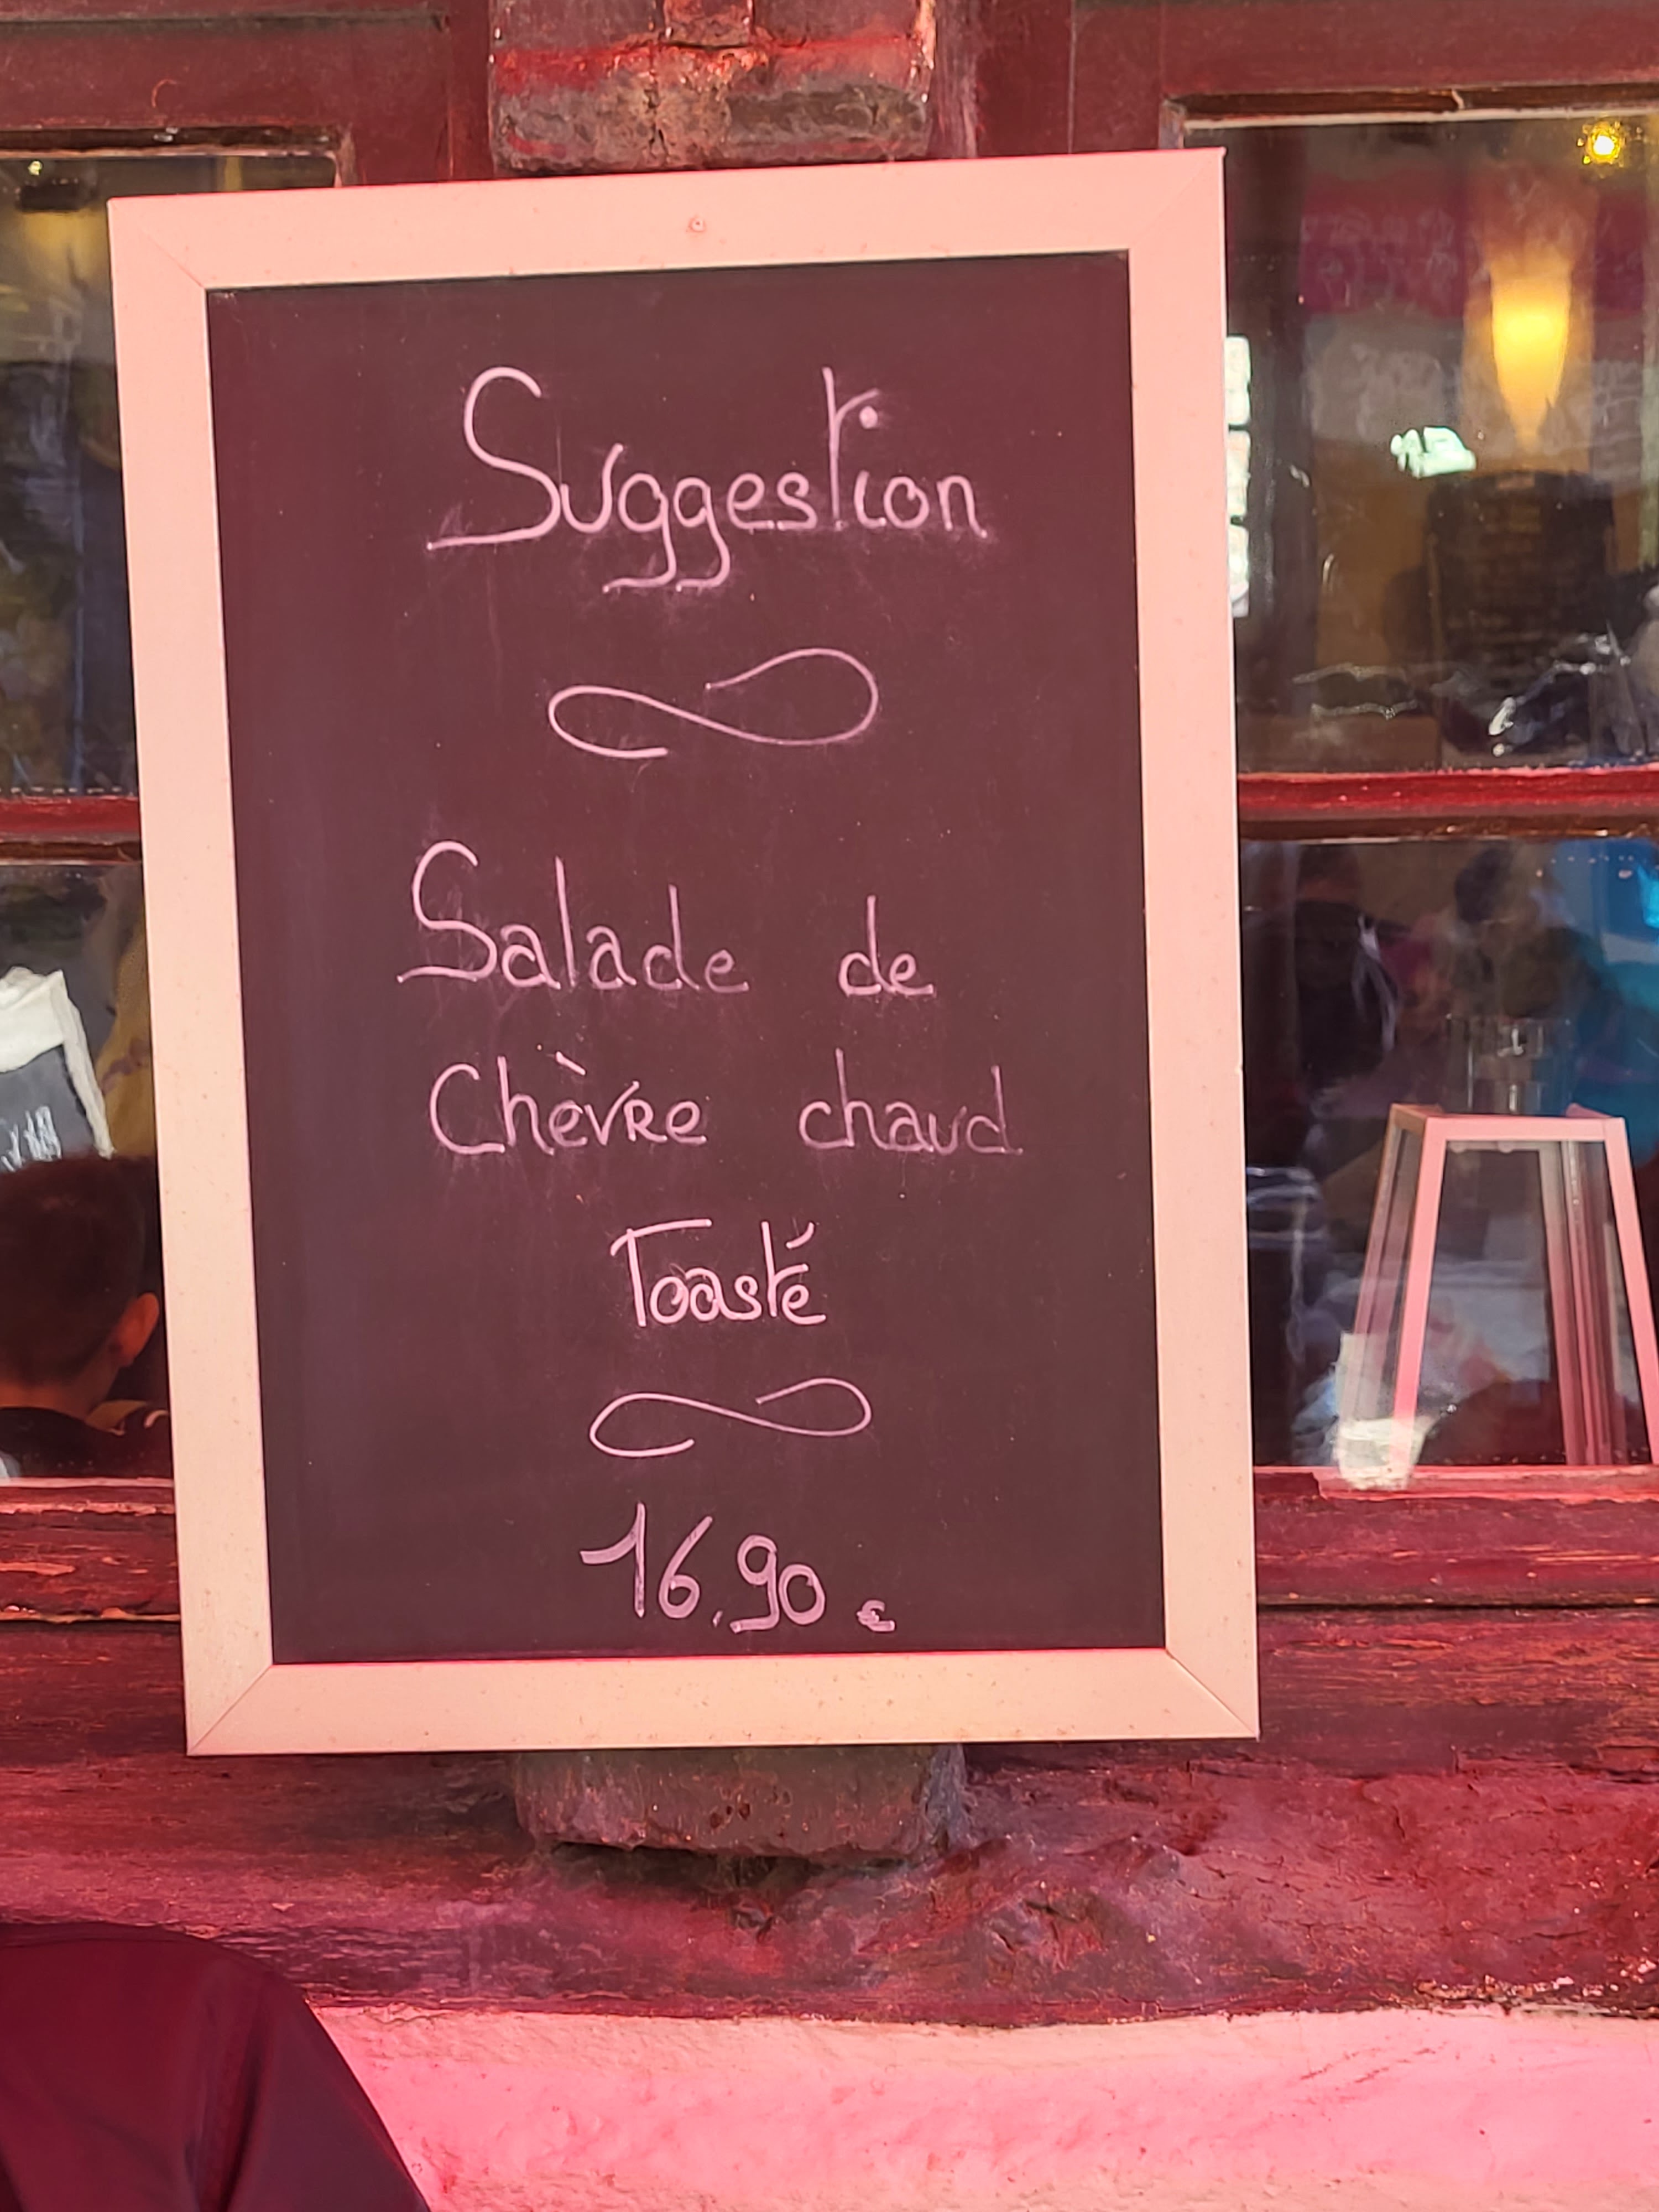 Suggestion
Salade de
Chèvre chaud
Toasté
16.90 €